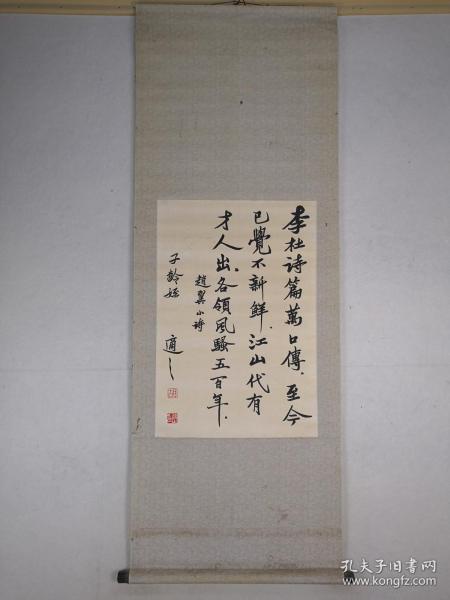 李杜诗篇萬口傳，至今
已覺不新鮮，江山代有
才人出，各領風騷五百年．
趙翼小诗
子齡姪
適之
孔夫子旧书网
www.kongfz.com